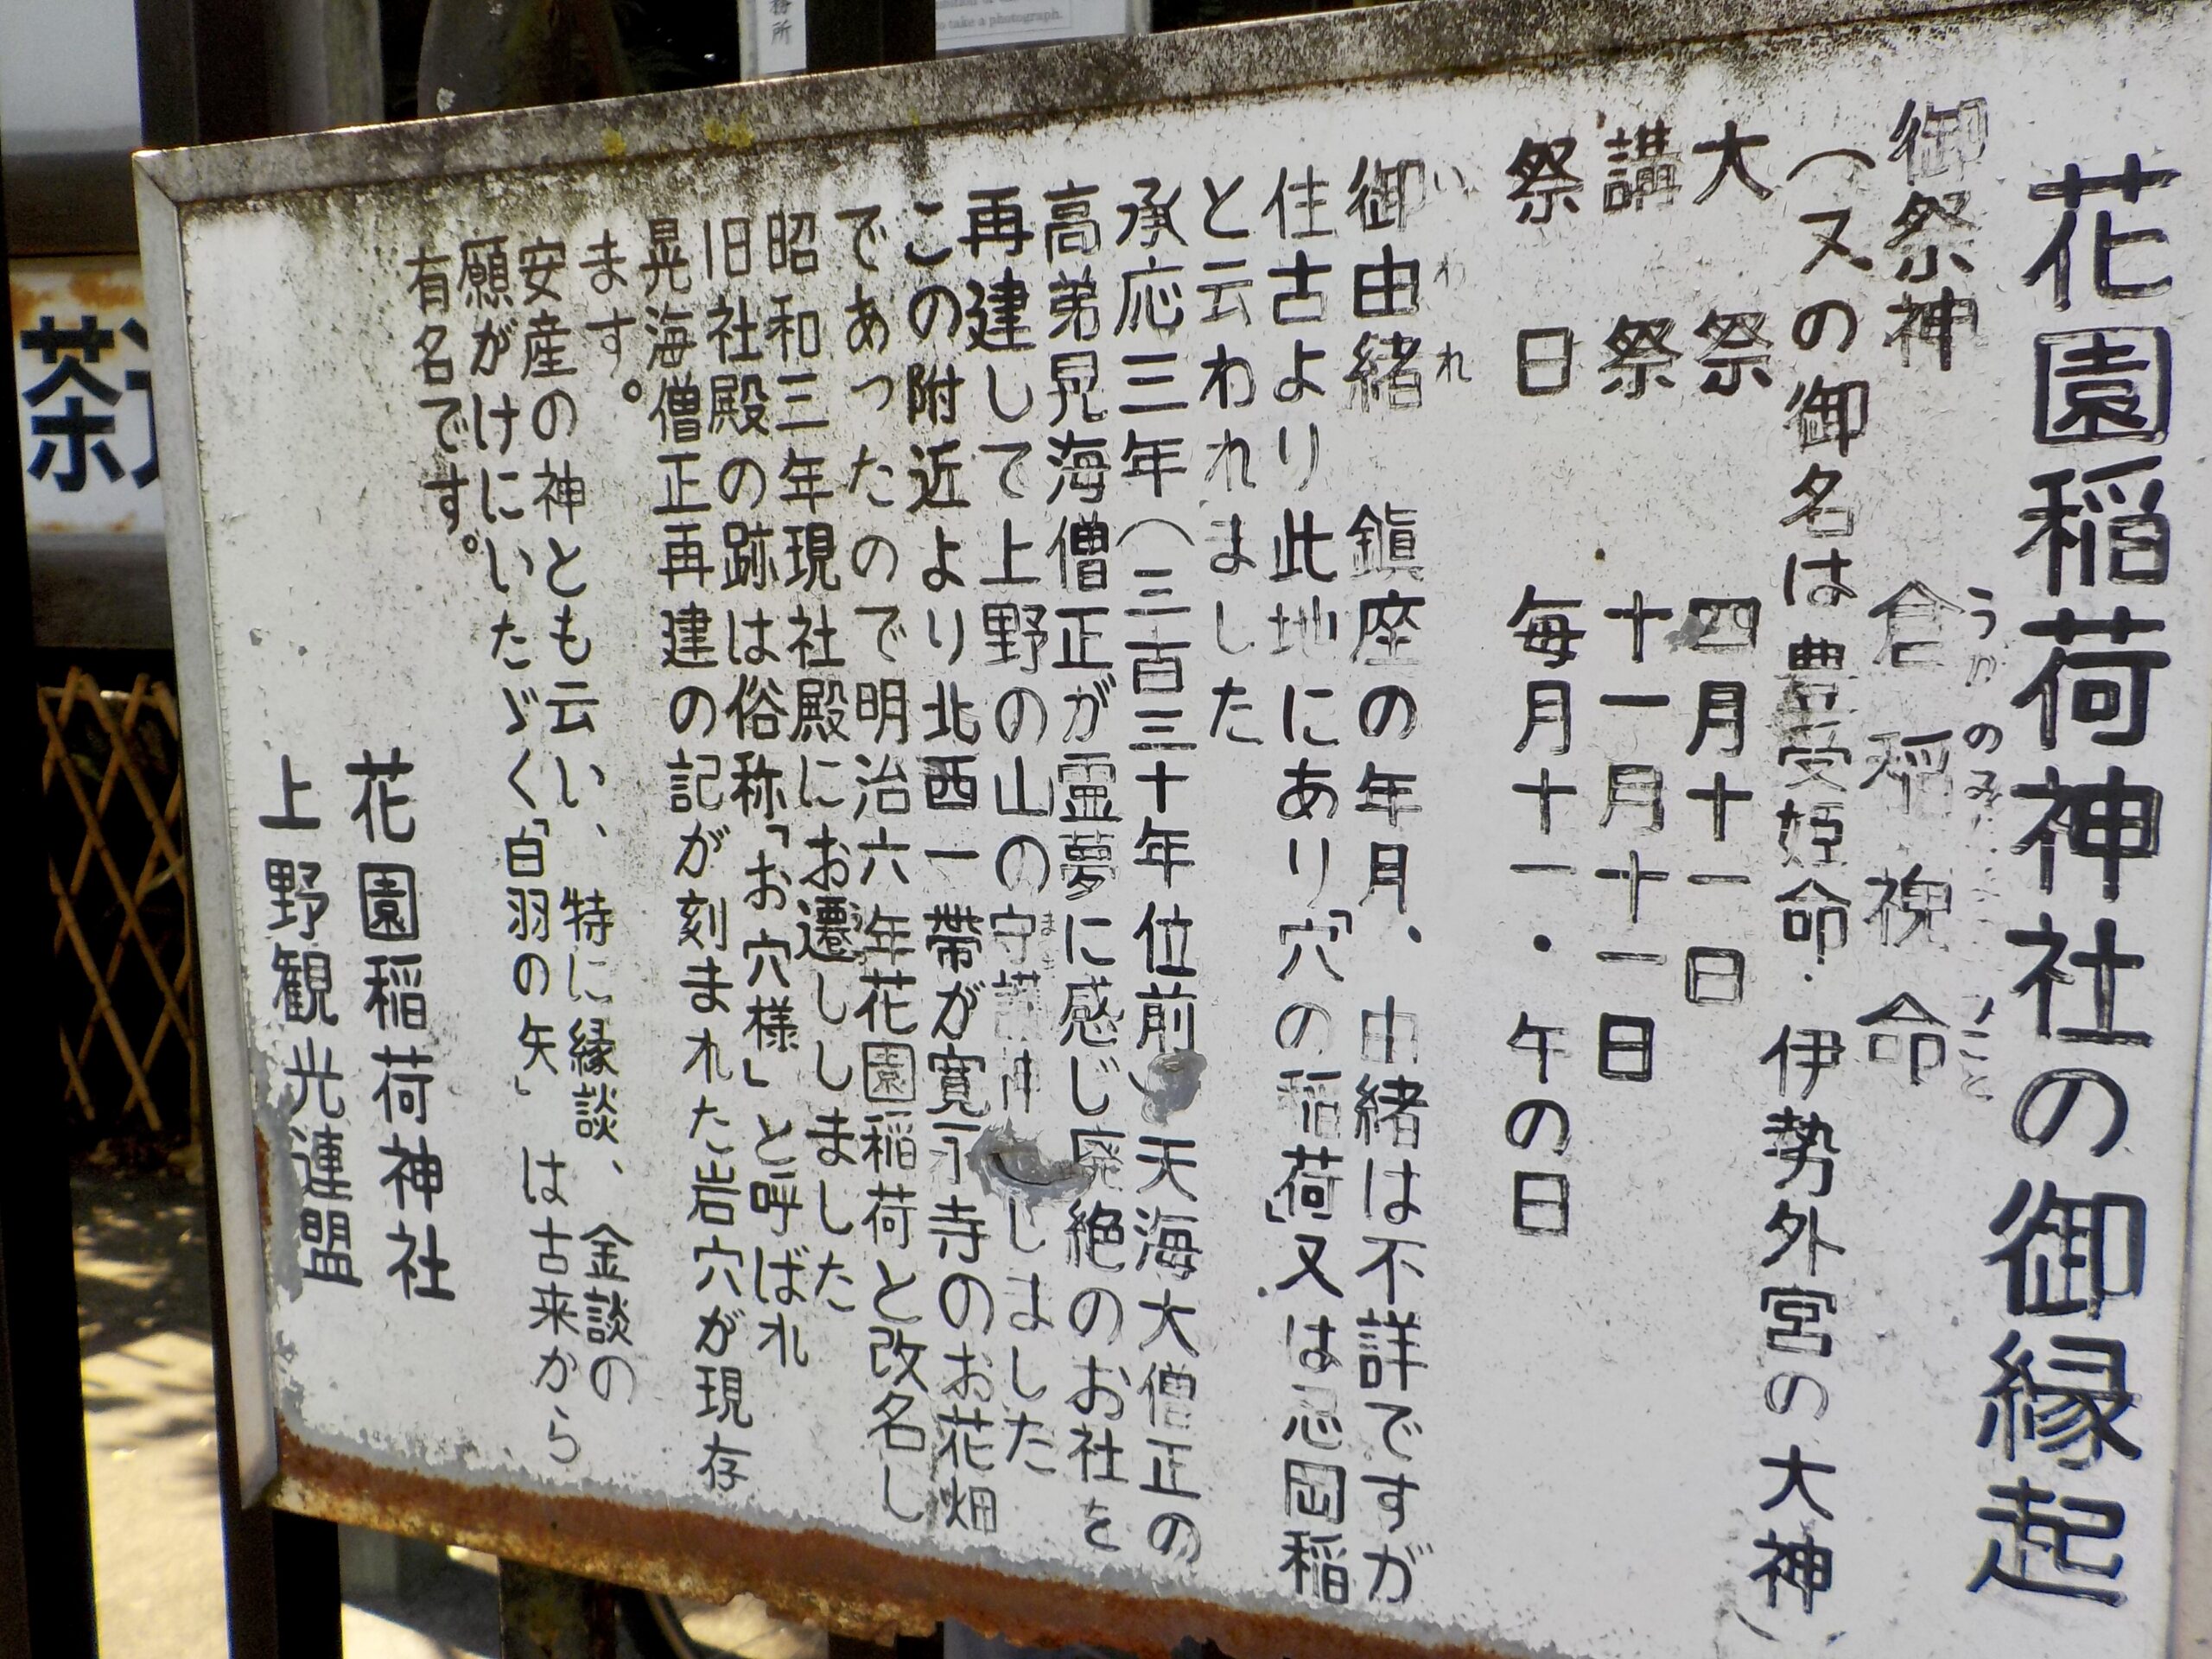 花園稲荷神社の御縁起
御祭神 倉稲魂命
うかのみ こと
(又の御名は豊受姫命・伊勢外宮の大神)
大祭 四月十一日
講祭 十一月十一日
祭日 毎月十一・午の日
いわれ
御由緒 鎮座の年月、由緒は不詳ですが
往古より此地にあり「穴の稲荷」又は忍岡稲
と云われました
承応三年(三百三十年位前)天海大僧正の
高弟晃海僧正が霊夢に感じ廃絶のお社を
再建して上野の山の守護神 しました
この附近より北西一帯が寛永寺のお花畑
であったので明治六年花園稲荷と改名し
昭和三年現社殿にお遷ししました
旧社殿の跡は俗称「お穴様」と呼ばれ
晃海僧正再建の記が刻まれた岩穴が現存
ます。
安産の神とも云い、特に縁談、金談の
願がけにいたゞく「白羽の矢」は古来から
有名です。
花園稲荷神社
上野観光連盟
茶
務所
to take a photograph.